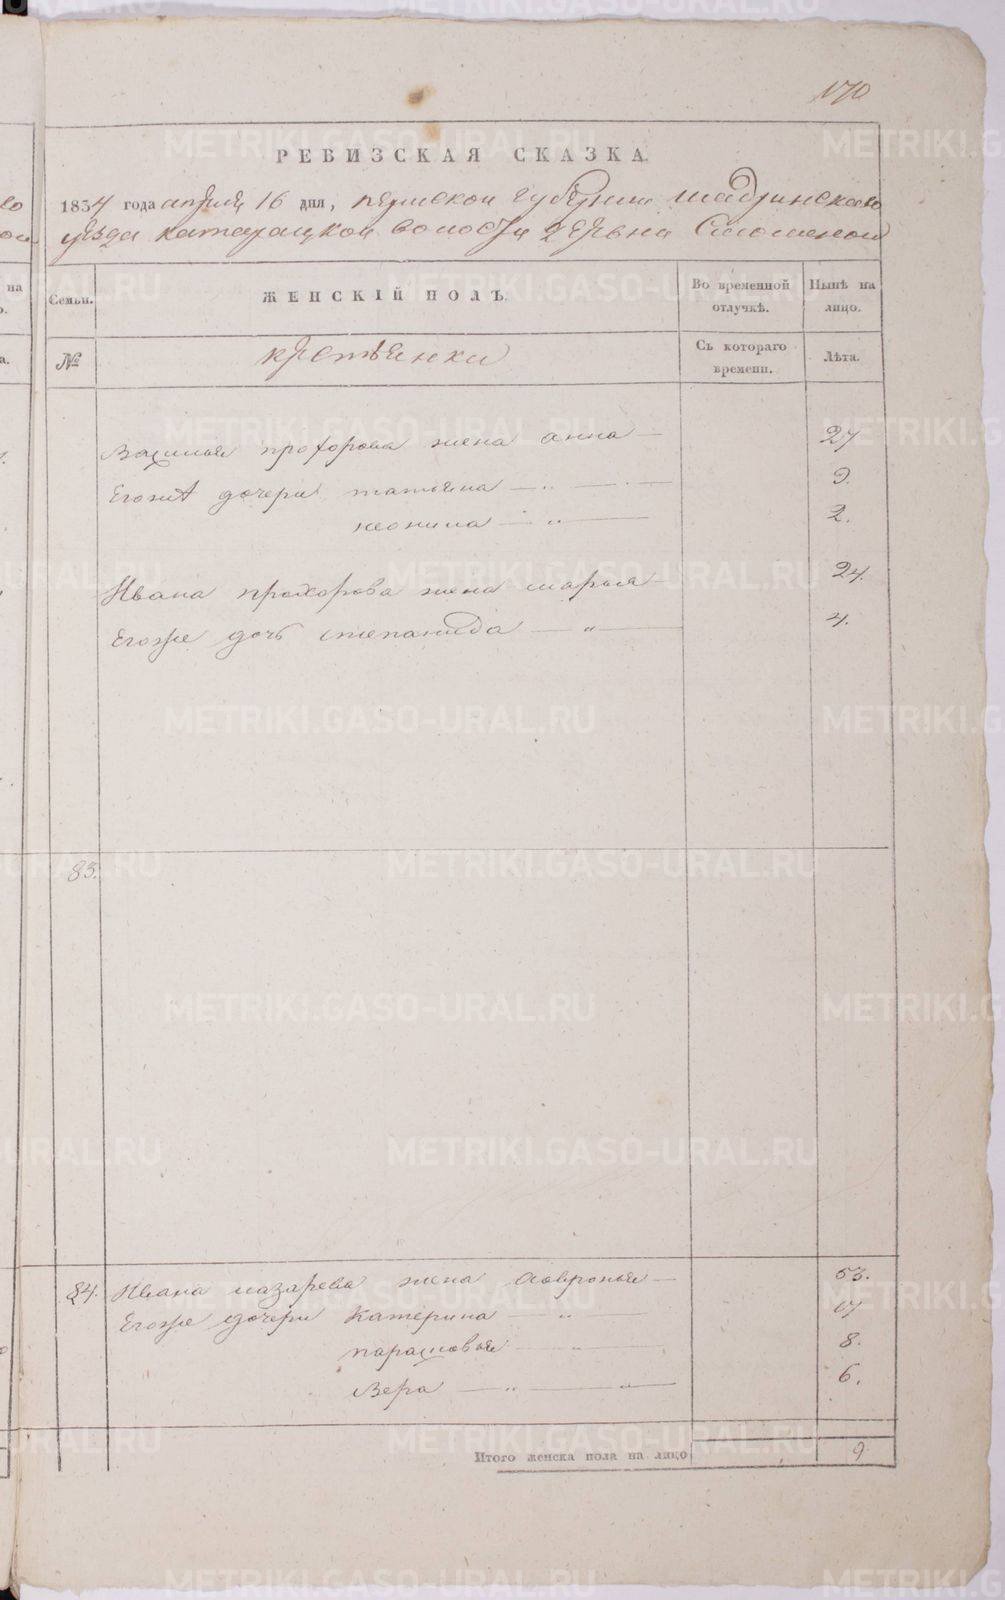 170
РЕВИЗСКАЯ СКАЗКА
1834 года апреля 16 дня, пермской губернии шадринскаго
уезда катайлацкой волости деревни
Семьи. ЖЕНСКІЙ ПОЛЪ. Во временной отлучкѣ. Нынѣ на лицо.
№ крестьянки Съ котораго времени. Лѣта.
Василья прохорова жена анна 27
Егожъ дочери татьяна 9
неонила 2.
Ивана прохорова жена марья 24.
Егоже дочь степанида 4.
83.
84. Ивана лазарева жена Офронья 53.
Егоже дочери Катерина 17
парасковья 8.
Вера 6.
Итого женска пола на лицо 9
METRIKI.GASO-URAL.RU